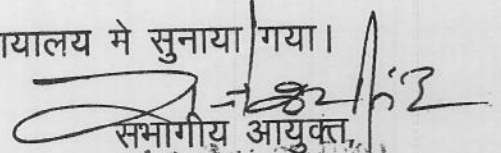 यालय मे सुनाया गया।
सभागीय आयुक्त,